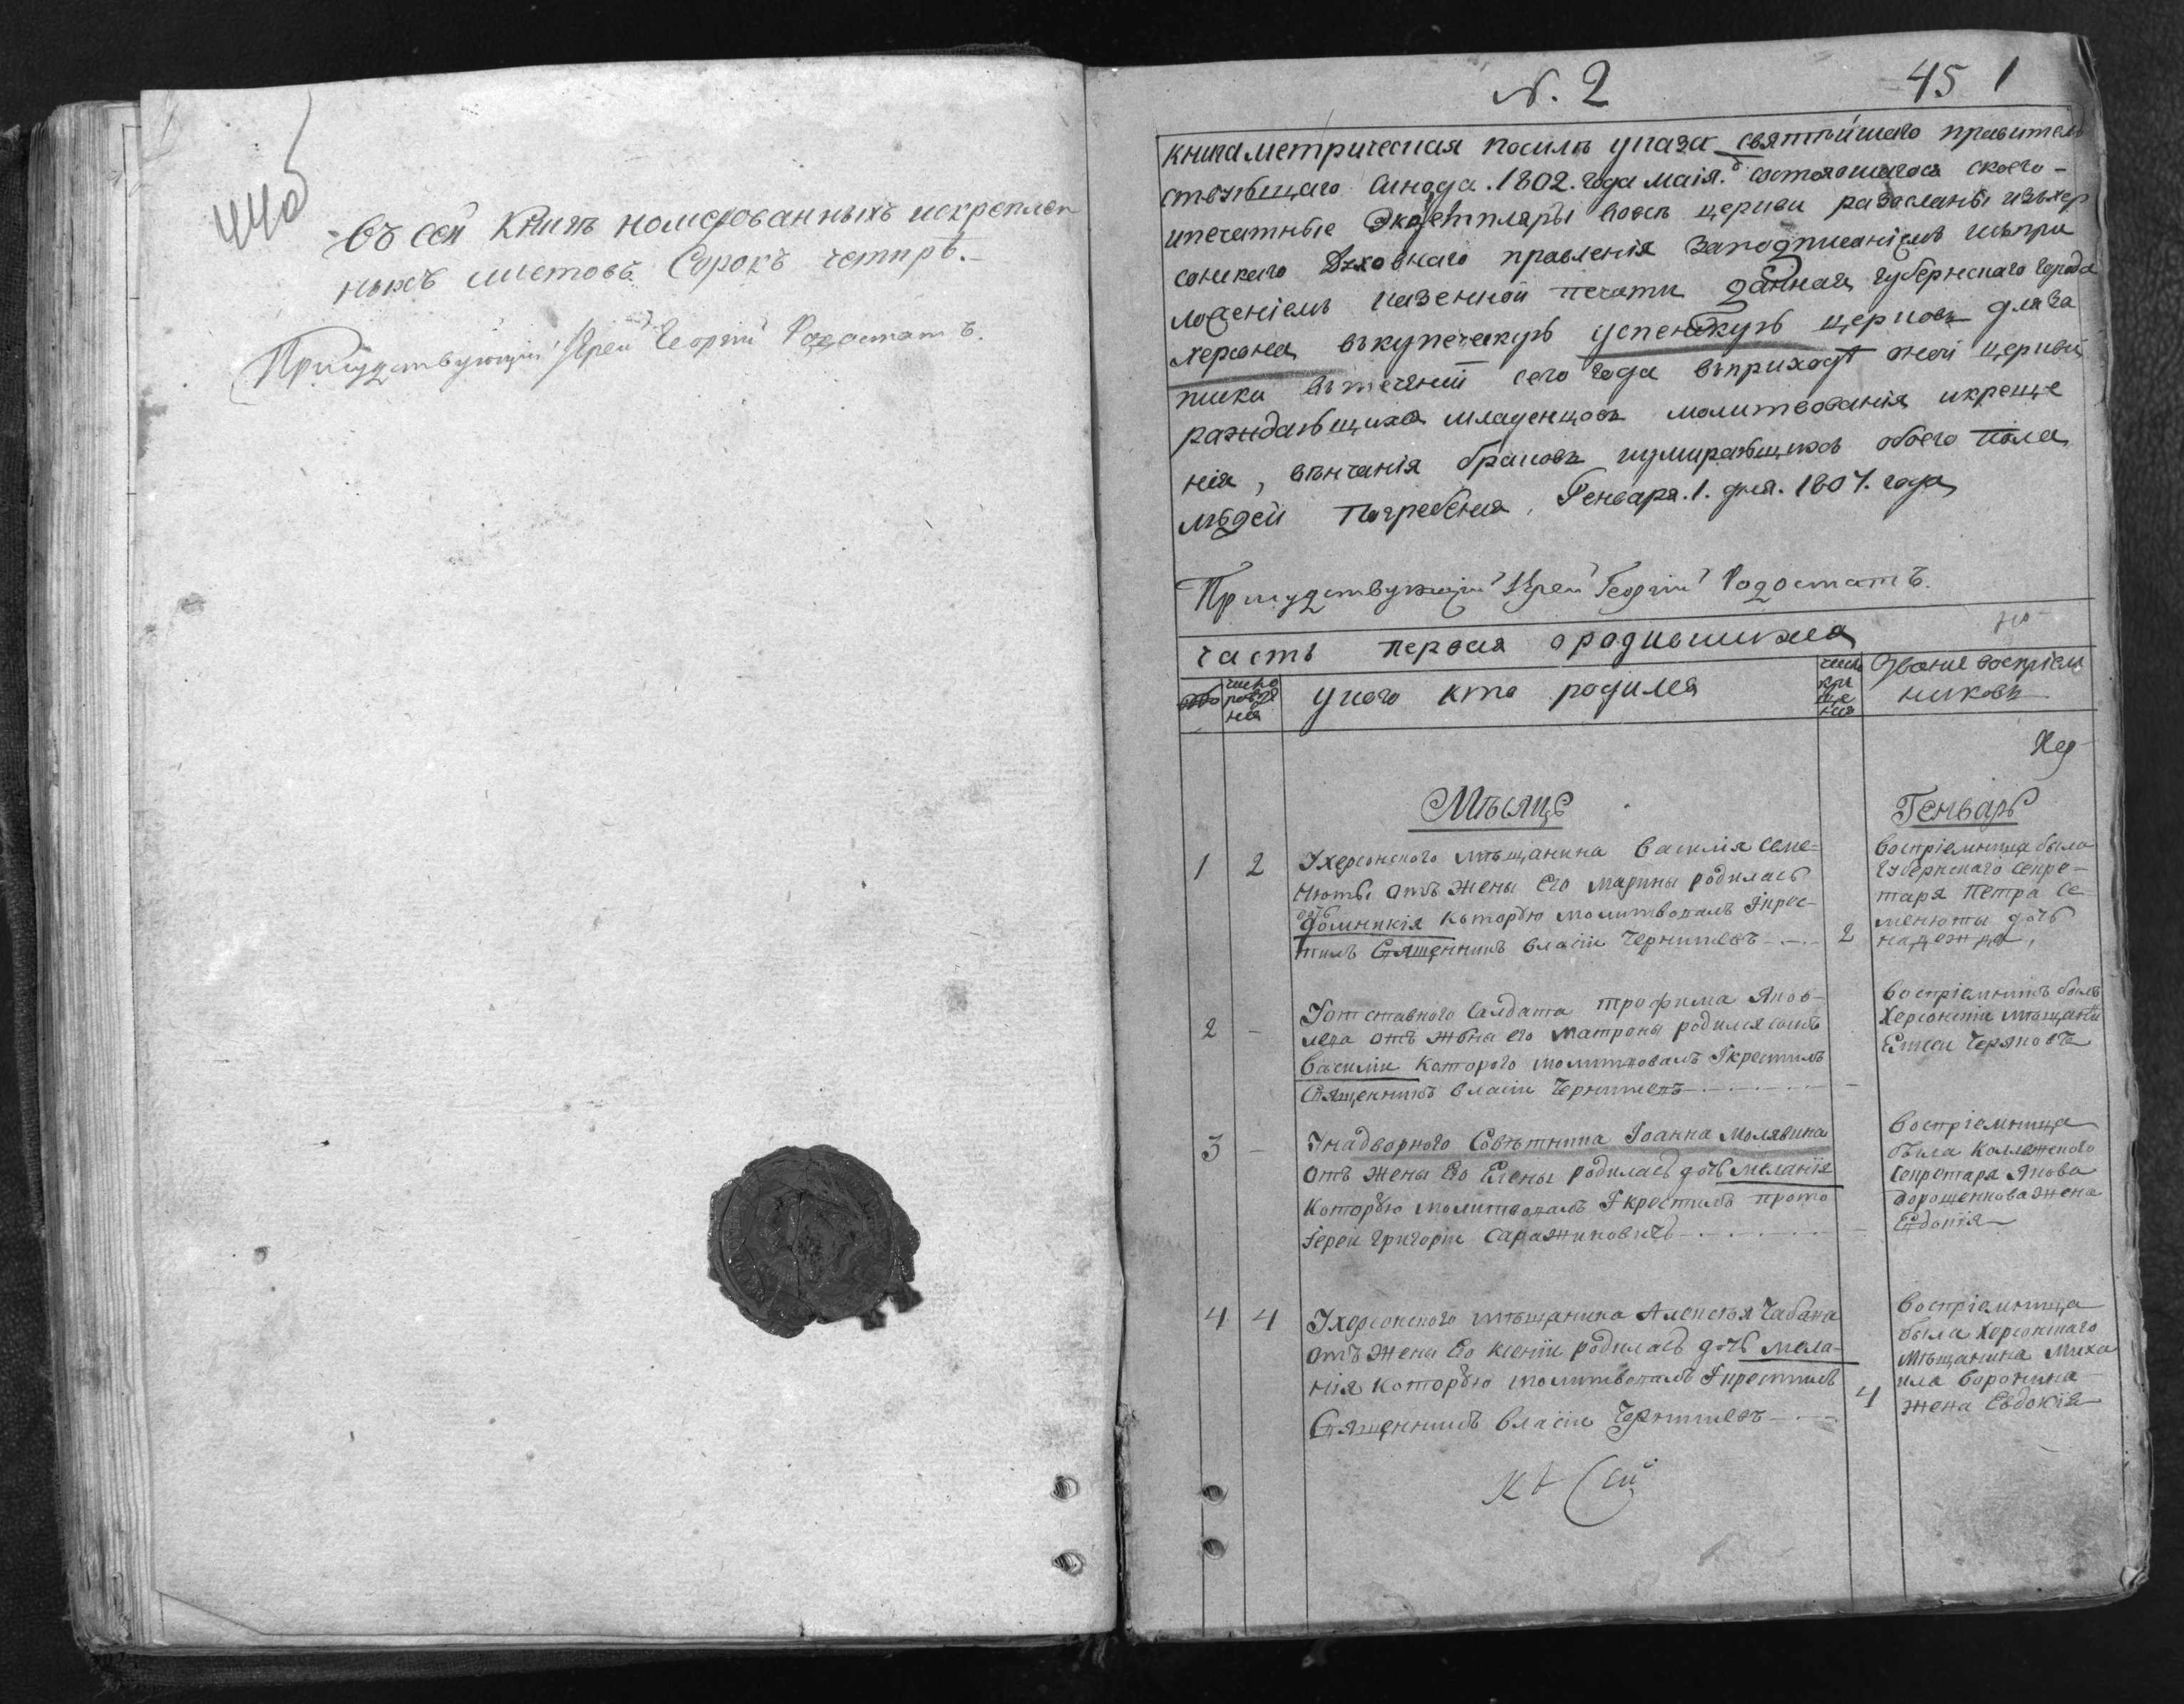 44об
Въ сей Книгѣ номерованныхъ искреплен
ныхъ листовъ Сорокъ четыре.
Присудствующій Іерей Георгій Родостатъ.
N. 2
45 1
книга метрическая посилѣ указа святѣйшаго правитель
ствующаго Синода. 1802. года маія. состоявшагося скоего-
ипечатные Экземпляры повсѣ церкви разосланы изъхер
сонскаго Духовнаго правленія заподписаніемъ исъпри
ложеніемъ казенной печати данная губернскаго города
херсона въкупеческую успенскую церковь для за
писки въ теченіи сего года въприходѣ оной церкви
раждающихся младенцовъ молитвованія икреще
нія, вѣнчанія браковъ иумирающихъ обоего пола
людей погребенія, Генваря. 1. дня. 1807. года
Присудствующій Іерей Георгій Родостатъ.
часть первая ородившихся
число рожде нія
укого кто родился
число кре ще нія
Званіе воспріем
никовъ
Мѣсяцъ
Генварь
1 2 Ухерсонского мѣщанина Василія Семе=
нюты отъ жены его Марины родилась
дочь
Домникія которую молитвовалъ Ікрес-
тилъ Священникъ Власій Чернышевъ 2
воспріемница была
губернскаго Секре-
таря Петра Се-
менюты дочь
надежда,
2 - Уотставного Салдата трофима Яков-
лева отъ жены его Матроны родился сынъ
Василій которого молитвовалъ Ікрестилъ
Священникъ Власій Чернышевъ -
воспріемникъ былъ
Херсонскій мѣщанинъ
Елисей
3 - Унадворного Совѣтника Іоанна Молявина
отъ жены Его Елены родилась дочь Меланія
которую молитвовалъ Ікрестилъ прото
іерей григорій Саражиновичъ -
воспріемница
была Коллежского
Секретаря Якова
дорошенкова жена
Евдокія
4 4 Ухерсонского мѣщанина Алексѣя Чабана
отъ жены Его Ксеніи родилась дочь Мела-
нія которую молитвовалъ Ікрестилъ
Священникъ Власій Чернышевъ 4
воспріемница
была Херсонского
Мѣщанина Миха
ила Воронина
жена Евдокія